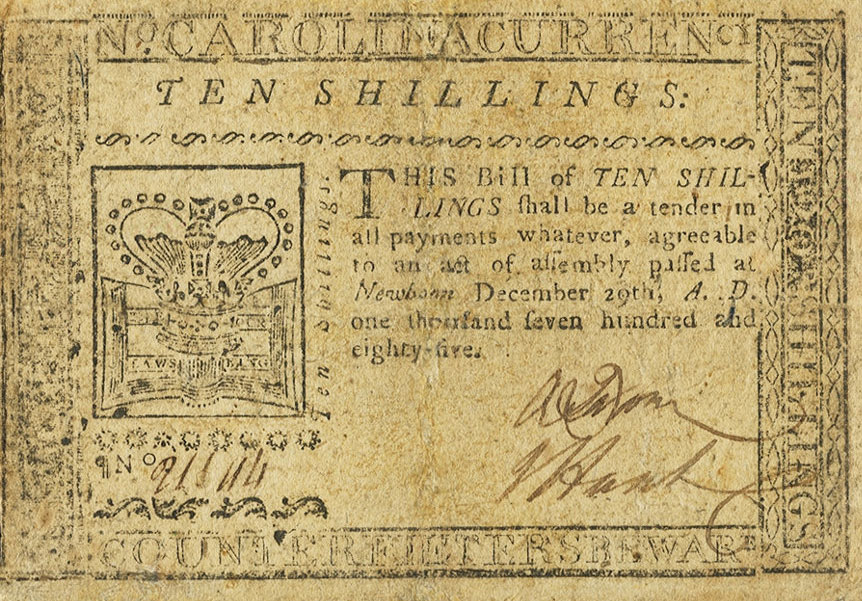 No. CAROLINA CURRENCY
TEN SHILLINGS:
THIS Bill of TEN SHIL-
LINGS ſhall be a tender in
all payments whatever, agreeable
to an act of aſſembly paſſed at
Newbern December 29th, A. D.
one thouſand ſeven hundred and
eighty-five.
Ten Shillings.
LAWS
No
J Hunt
COUNTERFEITERS BEWARE
TEN SHILLINGS